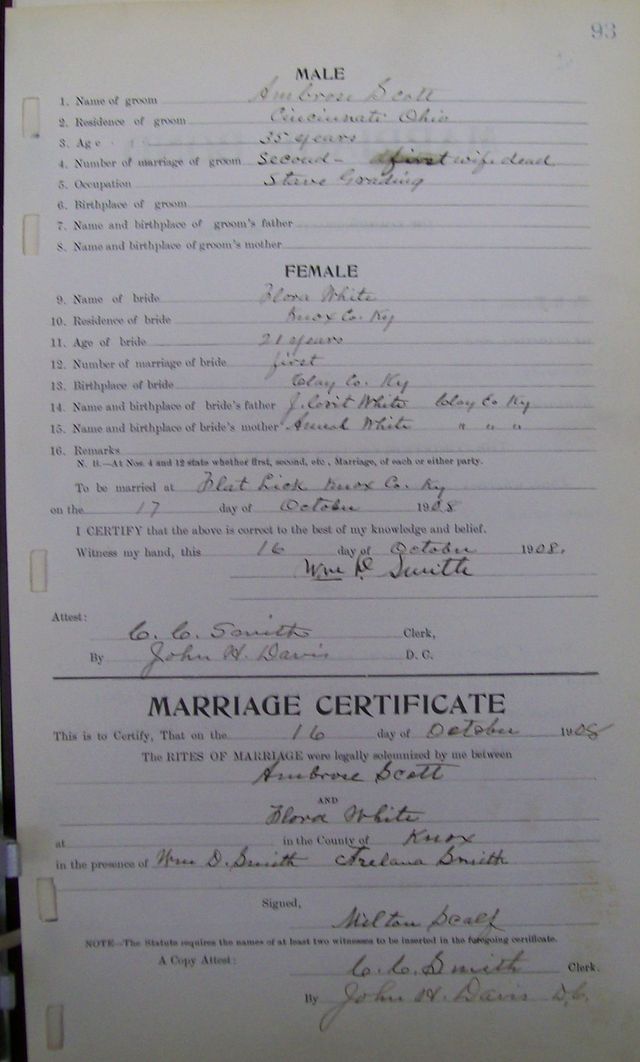 93
MALE
1. Name of groom Ambrose Scott
2. Residence of groom Cincinnati Ohio
3. Age 35 years
4. Number of marriage of groom Second - first wife dead
5. Occupation Stave Grading
6. Birthplace of groom
7. Name and birthplace of groom's father
8. Name and birthplace of groom's mother
FEMALE
9. Name of bride Flora White
10. Residence of bride Knox Co. Ky
11. Age of bride 21 years
12. Number of marriage of bride first
13. Birthplace of bride Clay Co. Ky
14. Name and birthplace of bride's father J. White Clay Co Ky
15. Name and birthplace of bride's mother White " " "
16. Remarks
N. B.—At Nos. 4 and 12 state whether first, second, etc., Marriage, of each or either party.
To be married at Flat Lick Knox Co. Ky
on the 17 day of October 1908
I CERTIFY that the above is correct to the best of my knowledge and belief.
Witness my hand, this 16 day of October 1908.
Wm D. Smith
Attest:
C. C. Smith Clerk,
By John H. Davis D. C.
MARRIAGE CERTIFICATE
This is to Certify, That on the 16 day of October 1908
The RITES OF MARRIAGE were legally solemnized by me between
Ambrose Scott
AND
Flora White
at in the County of Knox
in the presence of Wm D. Smith Arelana Smith
Signed,
Milton Scalf
NOTE—The Statute requires the names of at least two witnesses to be inserted in the foregoing certificate.
A Copy Attest: C. C. Smith Clerk.
By John H. Davis D.C.